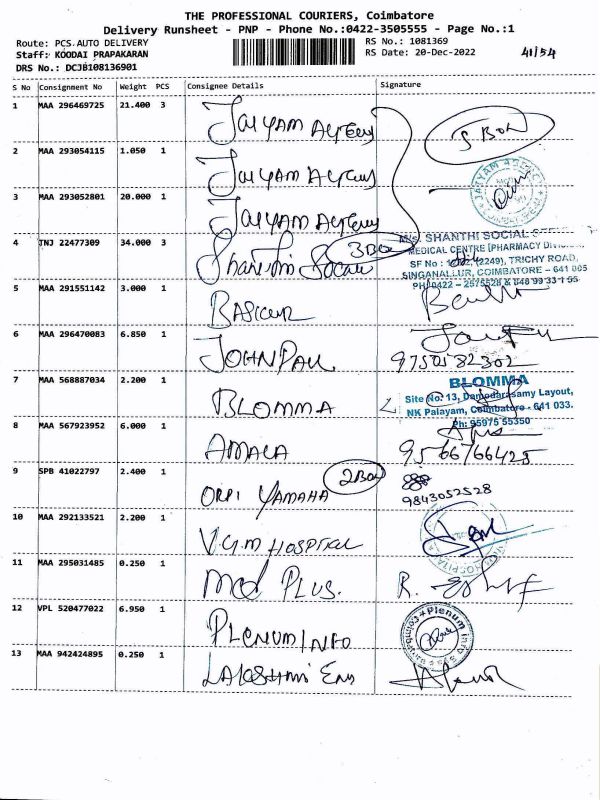 THE PROFESSIONAL COURIERS, Coimbatore
Delivery Runsheet - PNP - Phone No.:0422-3505555 - Page No.:1
Route: PCS.AUTO DELIVERY
RS No.: 1081369
Staff: KOODAI PRAPAKARAN
RS Date: 20-Dec-2022
41/54
DRS No.: DCJB108136901
S No Consignment No Weight PCS Consignee Details Signature
1 MAA 296469725 21.400 3 JAIYAM
5 Box
2 MAA 293054115 1.050 1 JAIYAM
3 MAA 293052801 20.000 1 JAIYAM
4 TNJ 22477309 34.000 3 Shanthi Social 3 Box
SHANTHI SOCIAL
MEDICAL CENTRE (PHARMACY
TRICHY ROAD,
SINGANALLUR, COIMBATORE - 641 005
5 MAA 291551142 3.000 1
6 MAA 296470083 6.850 1 JOHN PAUL
9750582302
7 MAA 568887034 2.200 1 BLOMMA
BLOMMA
Site No: 13, Damodarasamy Layout,
NK Palayam, Coimbatore - 641 033.
Ph: 95975 55350
8 MAA 567923952 6.000 1 AMALA
9566766425
9 SPB 41022797 2.400 1 ORPI YAMAHA 2 Box
9843052528
10 MAA 292133521 2.200 1 V.G.M HOSPITAL
11 MAA 295031485 0.250 1 Med PLUS.
12 VPL 520477022 6.950 1 PLENUM INFO
Plenum Info
13 MAA 942424895 0.250 1 LAKSHMI Eng